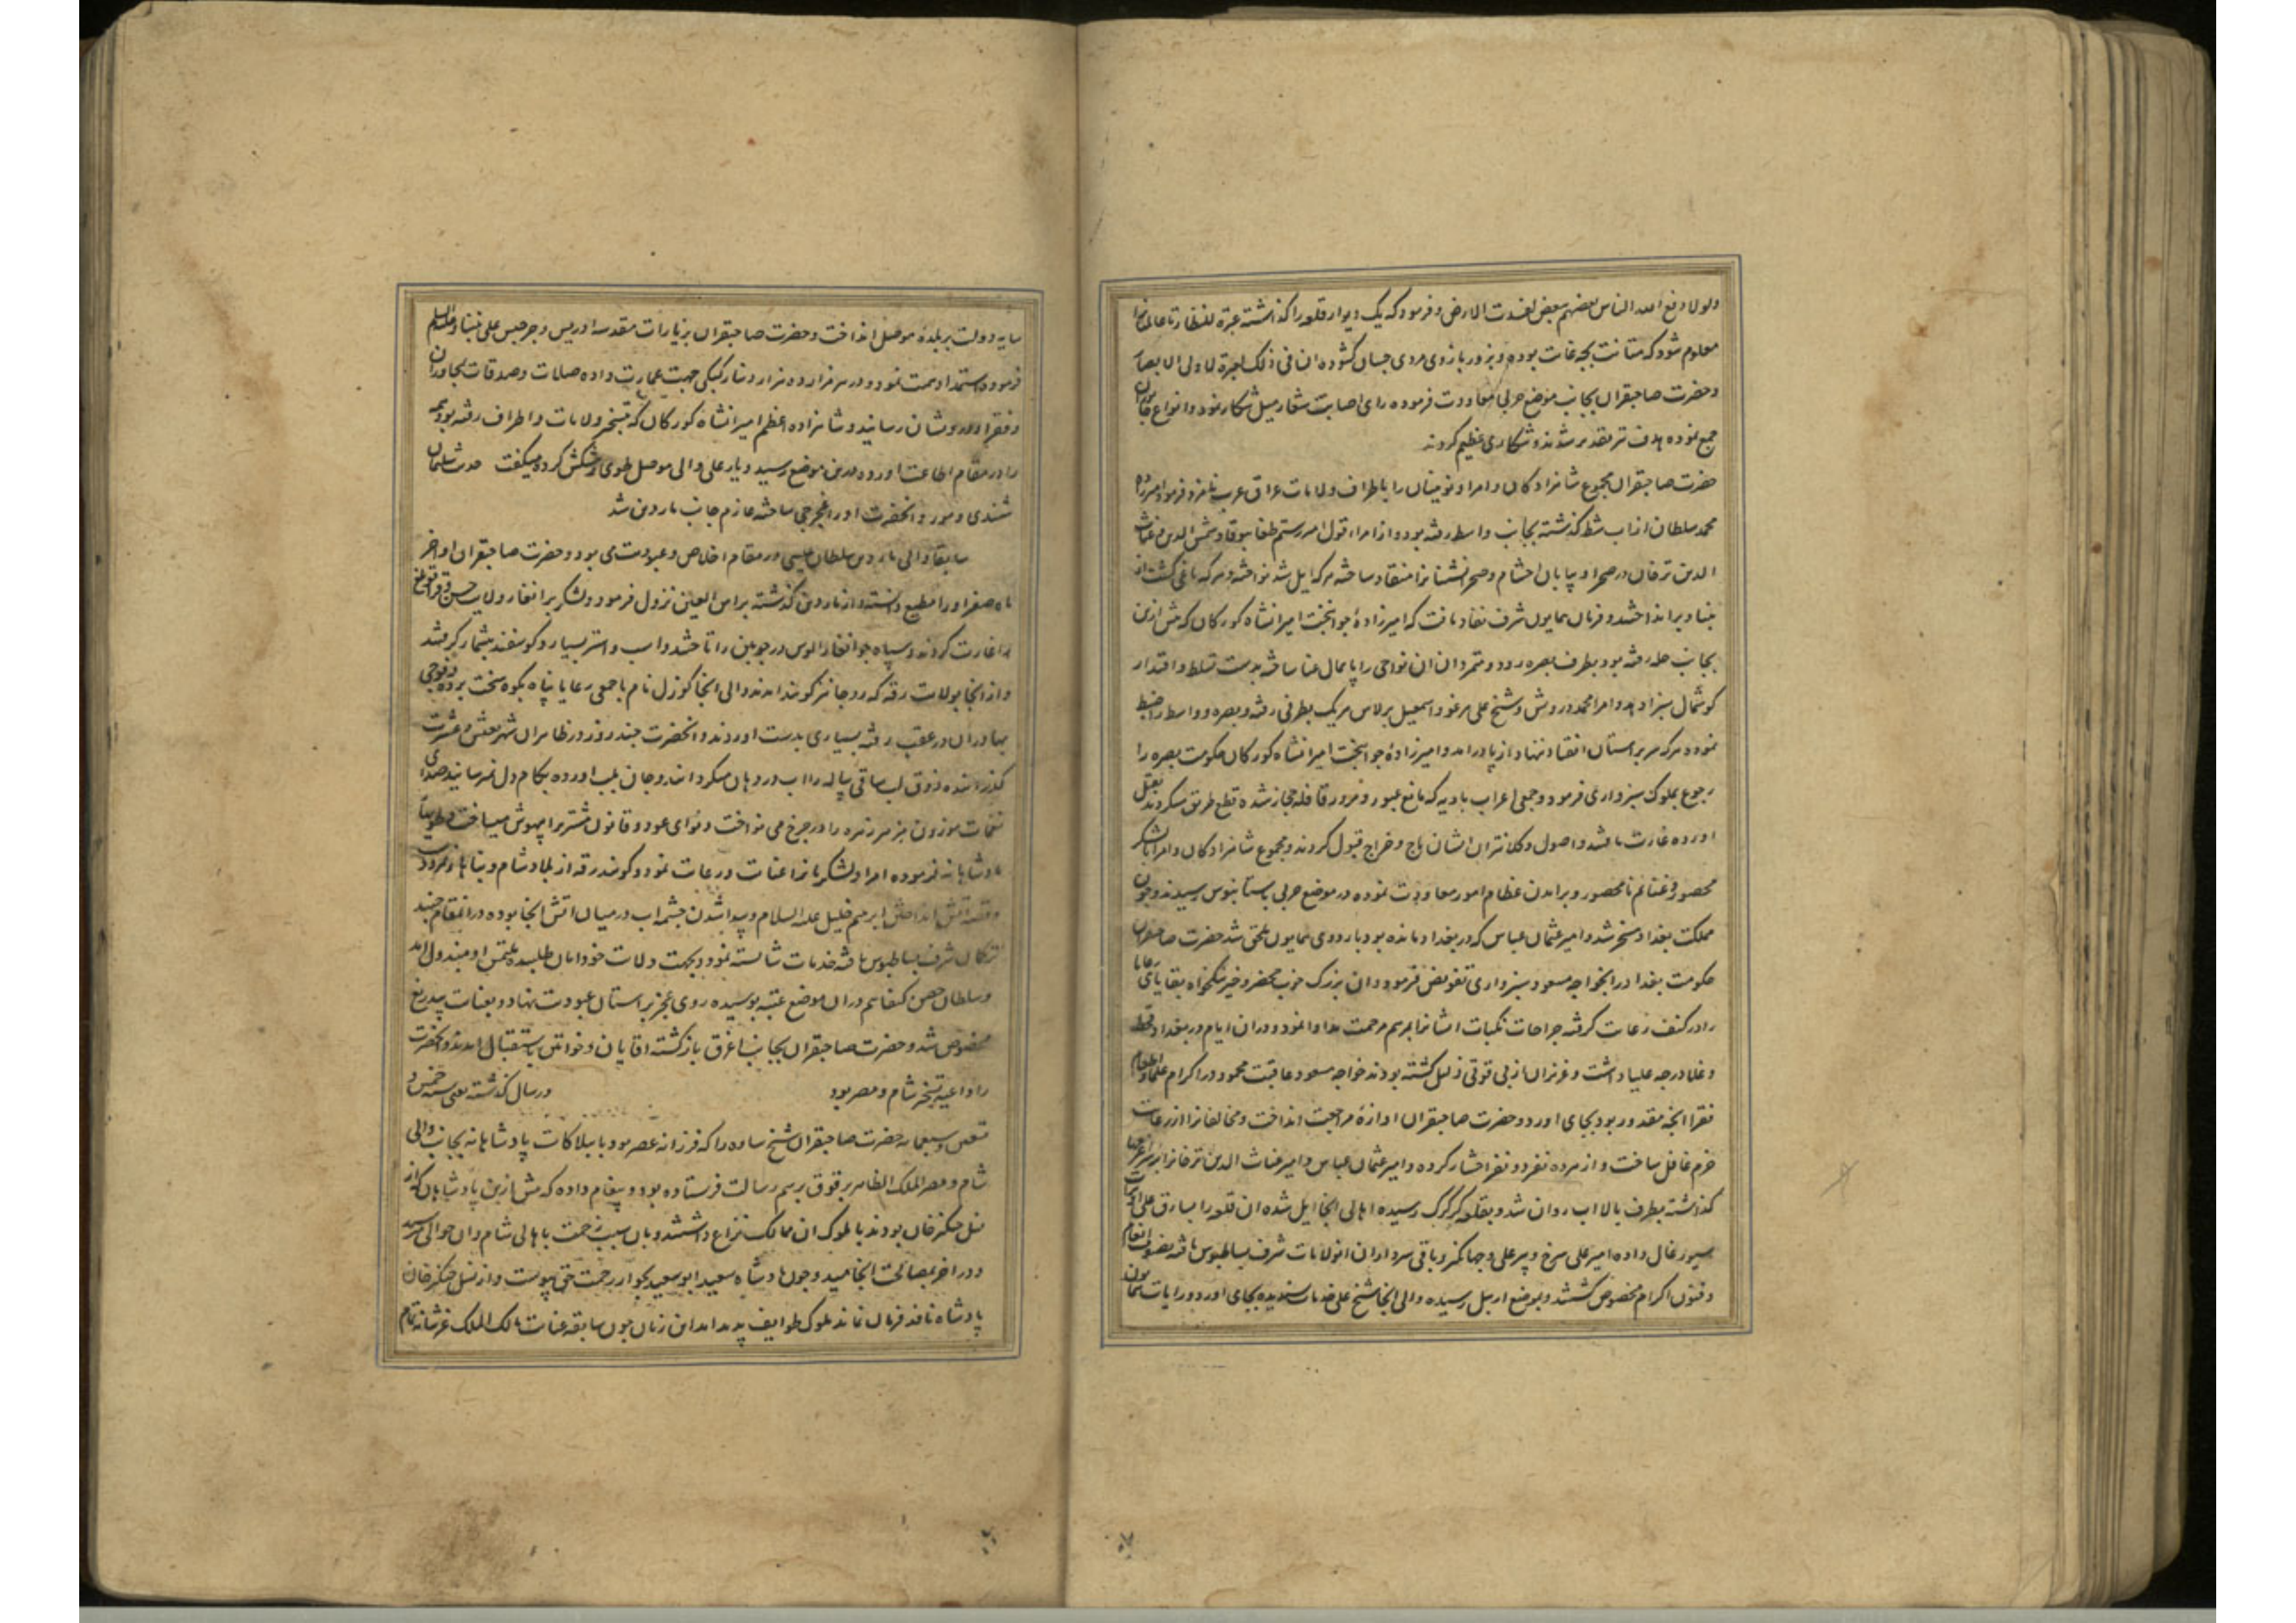 ولولا دفع الله الناس بعضهم ببعض لفسدت الارض و فرمود که یک دیوار قلعه را گذاشته عبرة للنظار تا عالمیانرا
معلوم شود که متانت بچه غایت بوده و بزور بازوی مردی جسان کشوده ان فی ذلک لعبرة لاولی الابصار
و حضرت صاحبقران بجانب موضع حربی معاودت فرموده رای اصابت شعار میل شکار نمود و انواع
جمع نموده هدف تیر تقدیر شدند و شکاری عظیم کردند
حضرت صاحبقران مجموع شاهزادگان و امرا و نوینان را باطراف ولایات عراق عرب نامزد فرمود امیرزاده
محمد سلطان از اب شط گذشته بجانب واسط رفته بود و از امراء قول امیر رستم طغا بوقا و شمس الدین و غیاث
الدین ترخان در صحرا و بیابان احشام و صحرانشینانرا منقاد ساخته هر که ایل شد نواخته و هر که یاغی گشت از
بنیاد برانداختند و فرمان همایون شرف نفاد یافت که امیرزادهٔ جوانبخت امیرانشاه کورکان که پیش ازین
بجانب حله رفته بود بطرف بصره رود و متمردان ان نواحی را پایمال عنا ساخته بدست تسلط و اقتدار
کوشمال بسزا دهد و امرا محمد درویش و شیخ علی ارغو و اسمعیل برلاس هر یک بطرفی رفته و بصره و واسط را ضبط
نمود و هر که سر بر استان انقیاد ننهاد از پا در امد و امیرزادهٔ جوانبخت امیرانشاه کورکان حکومت بصره را
رجوع بملوک سبزواری فرمود و جمعی اعراب بادیه که مانع عبور و مرور قافله حجاز شده قطع طریق میکردند بقتل
اورده غارت یافتند و اصول و کلانتران ایشان باج و خراج قبول کردند و مجموع شاهزادگان و امرا با لشکر
محصور و غنائم نامحصور و برامدن عظام امور معاودت نموده در موضع حربی ببساطبوس رسیدند و چون
مملکت بغداد مسخر شد و امیر عثمان عباس که در بغداد مانده بود باردوی همایون ملحق شد حضرت صاحبقران
حکومت بغداد را بخواجه مسعود سبزواری تفویض فرمود و ان بزرک خوب محضر و خیر نیکخواه بقایای رعایا
را در کنف رعایت گرفته جراحات نکبات ایشانرا بمرهم مرحمت مداوا نمود و دران ایام در بغداد قحط
و غلا درجه علیا داشت و عزیزان از بی قوتی ذلیل گشته بودند خواجه مسعود عاقبت محمود در اکرام علما و اطعام
فقرا انچه مقدور بود بجای اورد و حضرت صاحبقران اوازهٔ مراجعت انداخت و مخالفانرا از رعایت
حزم غافل ساخت و از هر ده نفر دو نفر اختیار کرده و امیر عثمان عباس و امیر غیاث الدین ترخانرا بر سر اغرق
گذاشته بطرف بالا اب روان شد و بقلعه کرکوک رسیده اهالی انجا ایل شده ان قلعه را بسارق علی اویرات
سیورغال داده امیر علی سرخ و پیر علی و جهانگیر و باقی سرداران انولایات شرف بساطبوس یافته بصنوف انعام
و فنون اکرام مخصوص گشتند و بموضع اربیل رسیده والی انجا شیخ علی خدمات پسندیده بجای اورد و رایات همایون
سایه دولت بر بلدهٔ موصل انداخت و حضرت صاحبقران بزیارات مقدسه ادریس و جرجیس علی نبینا و علیه السلام
فرمود و استمداد همت نمود و در هر مزار ده هزار دینار کبکی جهت عمارت داده صلات و صدقات بمجاوران
و فقرا و درویشان رسانید و شاهزاده اعظم امیرانشاه کورکان که بتسخیر ولایات و اطراف رفته بود همه
را در مقام اطاعت اورد و بدین موضع رسید و یار علی والی موصل طوی و پیشکش کرده میگفت حدیث سلیمان
شنیدی و مور و انحضرت او را غجرجی ساخته عازم جانب ماردین شد
سابقا والی ماردین سلطان عیسی در مقام اخلاص و عبودیت می بود و حضرت صاحبقران اواخر
ماه صفر او را مطیع دانسته و از ماردین گذشته براس العین نزول فرمود و لشکر برانغار ولایت حسن قراقویلوغ
را غارت کردند و سپاه جوانغار الوس درجوبین را تاختند و اسب و استر بسیار و کوسفند بیشمار گرفتند
و از انجا بولایت رفته که روحانیز گویند امدند والی انجا کوزل نام با جمعی رعایا پناه بکوه سخت برده و فوجی
بهادران در عقب رفته بسیاری بدست اوردند و انحضرت چند روز در ظاهر ان شهر بعیش و عشرت
گذرانیده ذوق لب ساقی پیاله را اب در دهان میگردانید و جان بلب اورده بکام دل میرسانید صدای
نغمات موزون بزم زهره را در چرخ می نواخت و نوای عود و قانون مشتریرا بیهوش میساخت و طویها
پادشاهانه فرموده امرا و لشکریانرا عنایت و رعایت نمود و گویند رقه از بلاد شام و بناها نمرود است
و قصه اتش انداختن ابرهیم خلیل علیه السلام و پیدا شدن چشمه اب در میان اتش انجا بوده در انمقام جنید
ترکمان شرف بساطبوس یافته خدمات شایسته نمود و بجهت ولایت خود امان طلبیده ملتمس او مبذول امد
و سلطان حصن کیفا هم دران موضع عتبه بوسیده روی عجز بر استان عبودیت نهاد و بعنایت بیدریغ
مخصوص شد و حضرت صاحبقران بجانب اغرق بازگشته اقایان و خواتین باستقبال امدند و انحضرت
را داعیه تسخیر شام و مصر بود در سال گذشته یعنی سنه خمس و
تسعین و سبعمایه حضرت صاحبقران شیخ ساوه را که فرزانه عصر بود با بیلاکات پادشاهانه بجانب والی
شام و مصر الملک الظاهر برقوق برسم رسالت فرستاده بود و پیغام داده که پیش ازین پادشاهان که از
نسل چنگیز خان بودند با ملوک ان ممالک نزاع داشتند و بان سبب زحمت باهالی شام و ان حوالی میرسید
و در اخر بمصالحت انجامید و چون پادشاه سعید ابوسعید بجوار رحمت حق پیوست و از نسل چنگیز خان
پادشاه نافذ فرمان نماند ملوک طوایف پدید امد این زمان چون سابقه عنایت مالک الملک عز شانه تمام